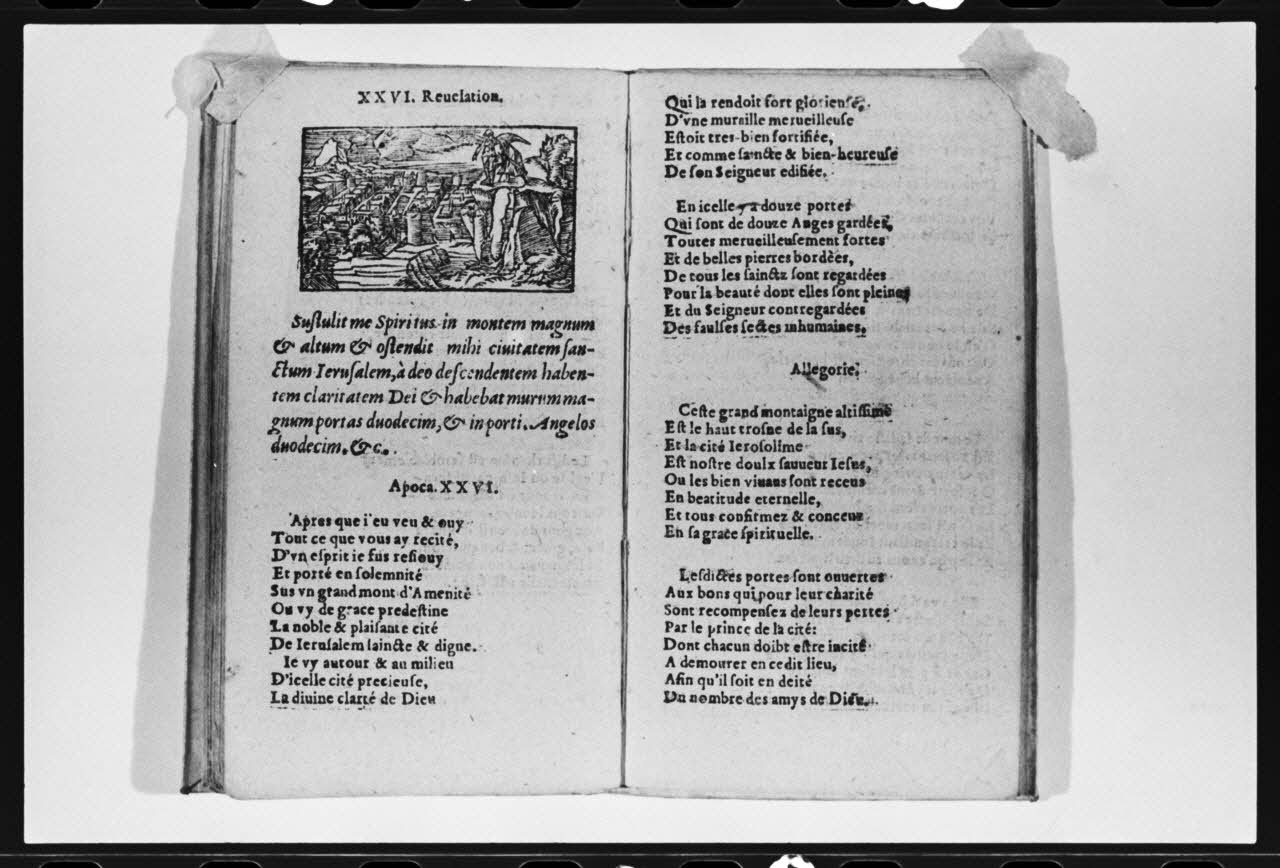 XXVI. Reuelation.
Suſtulit me Spiritus in montem magnum
& altum & oſtendit mihi ciuitatem ſan-
ctum Ieruſalem, à deo deſcendentem haben-
tem claritatem Dei & habebat murum ma-
gnum portas duodecim, & in porti. Angelos
duodecim. &c.
Apoca. XXVI.
Apres que i'eu veu & ouy
Tout ce que vous ay recité,
D'vn eſprit ie fus reſiouy
Et porté en ſolemnité
Sus vn grand mont d'Amenité
Ou vy de grace predeſtine
La noble & plaiſante cité
De Ieruſalem ſaincte & digne.
Ie vy autour & au milieu
D'icelle cité precieuſe,
La diuine clarté de Dieu
Qui la rendoit fort glorieuſe.
D'vne muraille merueilleuſe
Eſtoit tres-bien fortifiée,
Et comme ſaincte & bien-heureuſe
De ſon Seigneur edifiée.
En icelle y a douze portes
Qui ſont de douze Anges gardées,
Toutes merueilleuſement fortes
Et de belles pierres bordèes,
De tous les ſainctz ſont regardées
Pour la beauté dont elles ſont pleines
Et du Seigneur contregardées
Des faulſes ſectes inhumaines.
Allegorie.
Ceſte grand montaigne altiſſime
Eſt le haut troſne de la ſus,
Et la cité Ieroſolime
Eſt noſtre doulx ſauueur Ieſus,
Ou les bien viuans ſont receus
En beatitude eternelle,
Et tous confirmez & conceuz
En ſa grace ſpirituelle.
Leſdictes portes ſont ouuertes
Aux bons qui pour leur charité
Sont recompenſez de leurs pertes
Par le prince de la cité:
Dont chacun doibt eſtre incité
A demourer en cedit lieu,
Afin qu'il ſoit en deité
Du nombre des amys de Dieu.